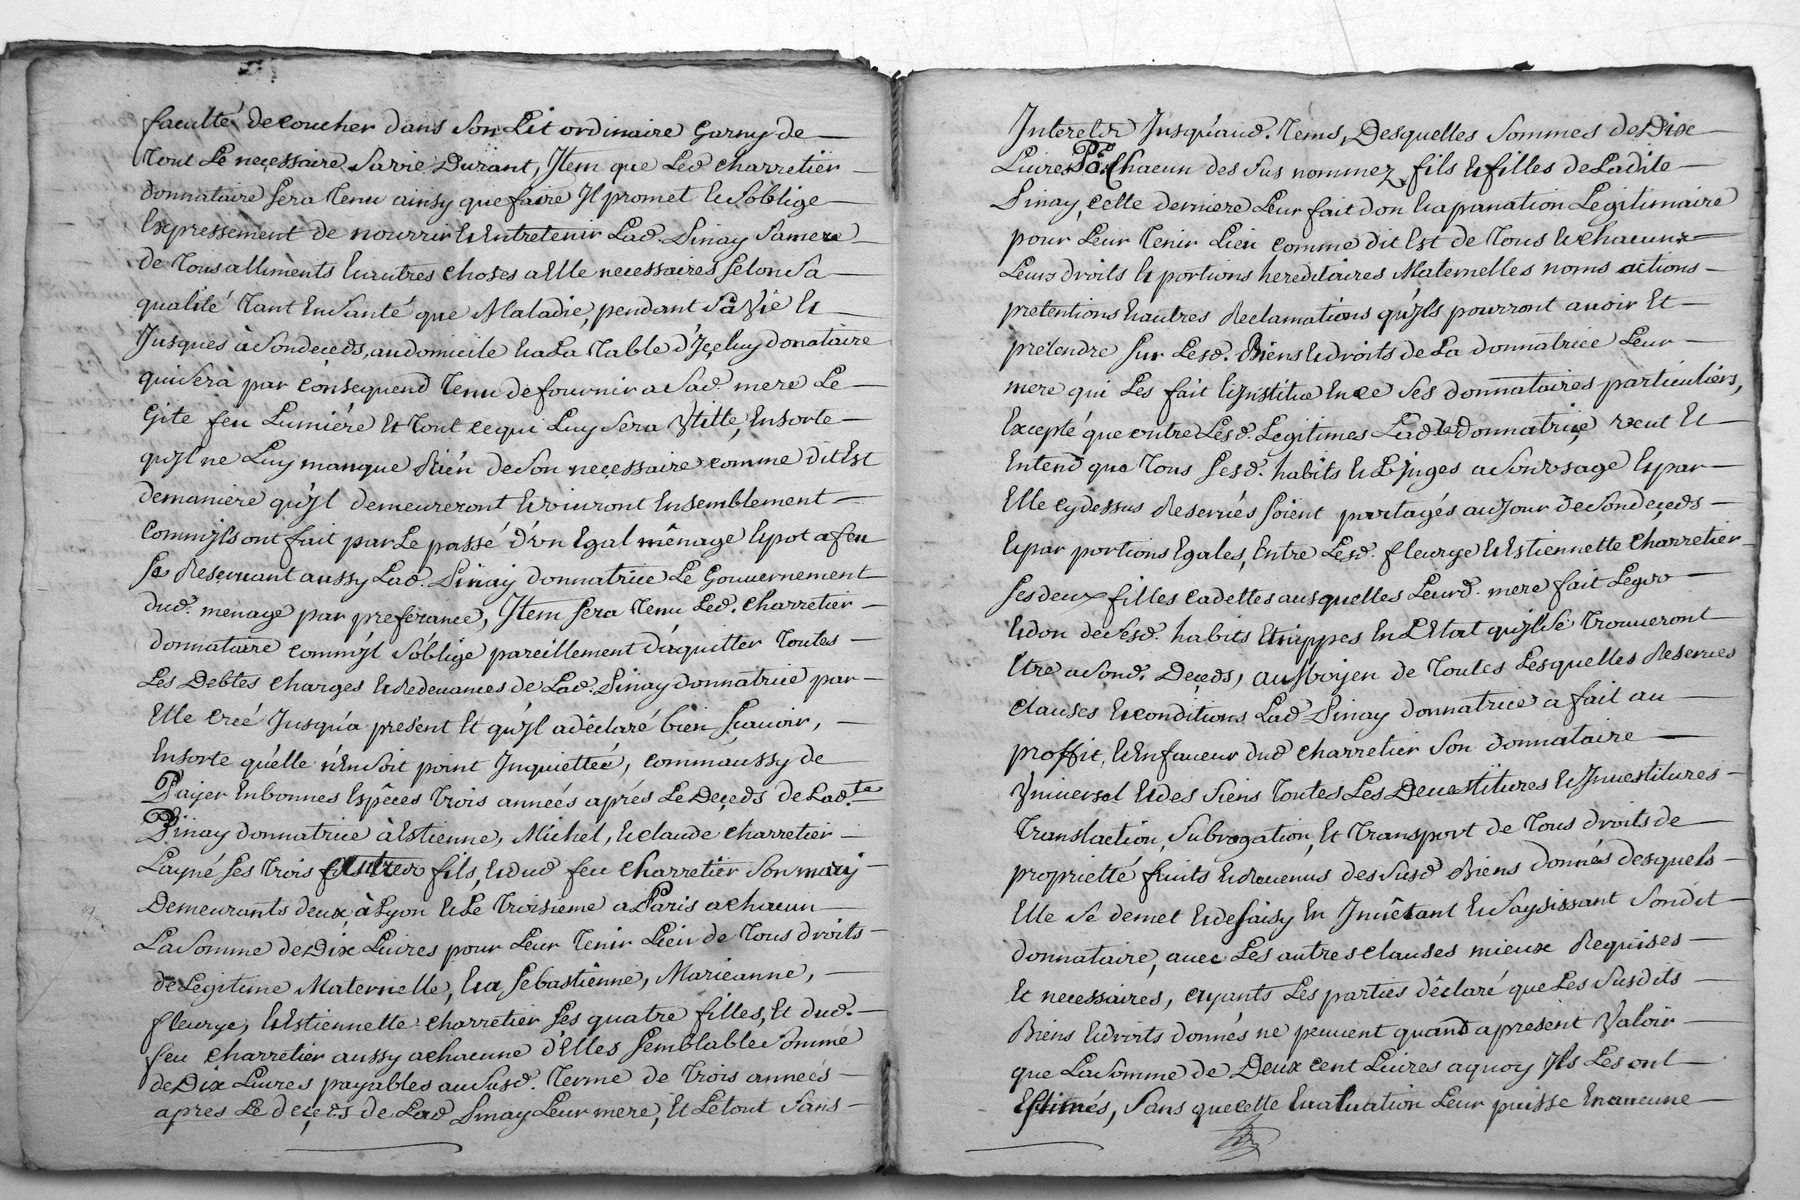 faculté de coucher dans Son Lit ordinaire Garny de
Tout Le neçessaire Sa vie Durant, Item que Led. charretier
donnataire Sera Tenu ainsy que faire Il promet Et S'oblige
Expressement de nourrir Et Entretenir Lad. Sinay Sa mere
de Tous alliments Et autres choses a Elle necessaires Selon Sa
qualité Tant En Santé que Maladie, pendant Sa Vie Et
Jusques à Son deceds, au domicile Et a La Table d'Içeluy donataire
qui Sera par Consequend Tenu de fournir a Sad. mere Le
Gite feu Lumiére Et Tout ce qui Luy Sera Vtille, En Sorte
qu'Il ne Luy manque Rién de Son neçessaire comme dit Est
de maniere qu'Il demeureront Et viuront Ensemblement
Comm'Ils ont fait par Le passé d'vn Egal mênage Et pot a feu
Se Reseruant aussy Lad. Sinay donnatrice Le Gouuernement
dud. menage par preferance, Item Sera Tenu Led. Charretier
donnataire comm'Il S'oblige pareillement d'aquitter Toutes
Les Debtes charges Et Redeuances de Lad. Sinay donnatrice par
Elle creé Jusqu'a present Et qu'Il a déclaré bien Scauoir,
En Sorte qu'elle n'En Soit point Inquiettée, comm'aussy de
Payer En bonnes Espêces Trois années aprés Le Deçeds de Lad.te
Sinay donnatrice à Estienne, Michel, Et claude charretier
L'ayné Ses Trois autres fils, Et dud. feu Charretier Son mary
Demeurants deux à Lyon Et Le Troisieme a Paris a chacun
La Somme de Dix Liures pour Leur Tenir Lieu de Tous droits
de Legitime Maternelle, Et a Sebastienne, Marieanne,
fleurye, Et Estiennette charretier Ses quatre filles, Et dud.
feu Charretier aussy a chacune d'Elles Semblable Sommé
de Dix Liures payables au Susd. Terme de Trois années
apres Le deçeds de Lad. Sinay Leur mere, Et Le tout Sans
Interest Jusqu'aud. Tems, Desquelles Sommes de Dix
Liures Pour Chacun des Sus nommez fils Et filles de Ladite
Sinay, cette derniere Leur fait don Et apanation Legitimaire
pour Leur Tenir Lieu comme dit Est de Tous Et chacuns
Leurs droits Et portions hereditaires Maternelles noms actions
pretentions Et autres Reclamations qu'Ils pourront auoir Et
pretendre Sur Lesd. Biens Et droits de La donnatrice Leur
mere qui Les fait Et Institue En ce Ses donnataires particuliers,
Excepté que outre Lesd. Legitimes Lad.te donnatrice veut Et
Entend que Tous Sesd. habits Et Linges a Son vsage Et par
Elle cy dessus Reserués Soient partagés au Jour de Son deçeds
Et par portions Egales, Entre Lesd. fleurye Et Estiennette Charretier
Ses deux filles cadettes ausquelles Leurd. mere fait Legs
Et don de Sesd. habits Et nippes En L'Etat qu'Ils Se Trouueront
Etre a Sond. Deçeds, au Moyen de Toutes Lesquelles Reserues
Clauses Et conditions Lad. Sinay donnatrice a fait au
proffit, Et En faueur dud. charretier Son donnataire
Vniuersel Et des Siens Toutes Les Deuestitures Et Inuestitures
Translaction, Subrogation, Et Transport de Tous droits de
proprietté fruits Et Reuenus des Susd. Biens donnés desquels
Elle Se demet Et desaisy En Inuêtant Et Saysissant Sondit
donnataire, auec Les autres clauses mieux Requises
Et necessaires, ayants Les parties déclaré que Les Susdits
Biens Et droits donnés ne peuuent quand a present Valoir
que La Somme de Deux cent Liures a quoy Ils Les ont
Estimés, Sans que cette Eualuation Leur puisse En aucune